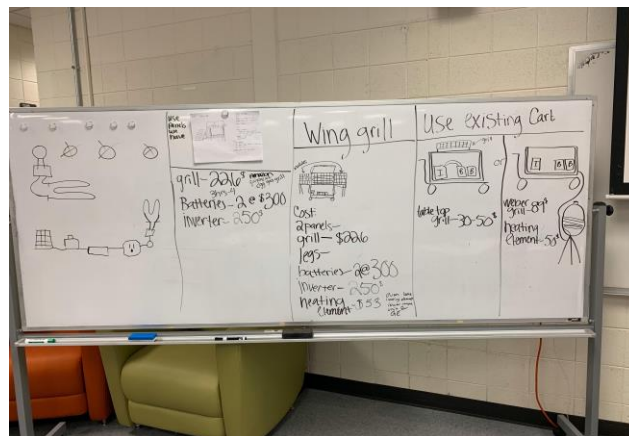 use
panels
we
have
grill-226$
Batteries-2@$300
inverter-250$
Wing grill
Cost
2panels-
grill-$226
legs-
batteries-2@300
Inverter-250$
heating
element-$53
Use existing Cart
grill
I BB
or
table top
grill-30-50$
I BB
weber
grill-89$
heating
element-50$